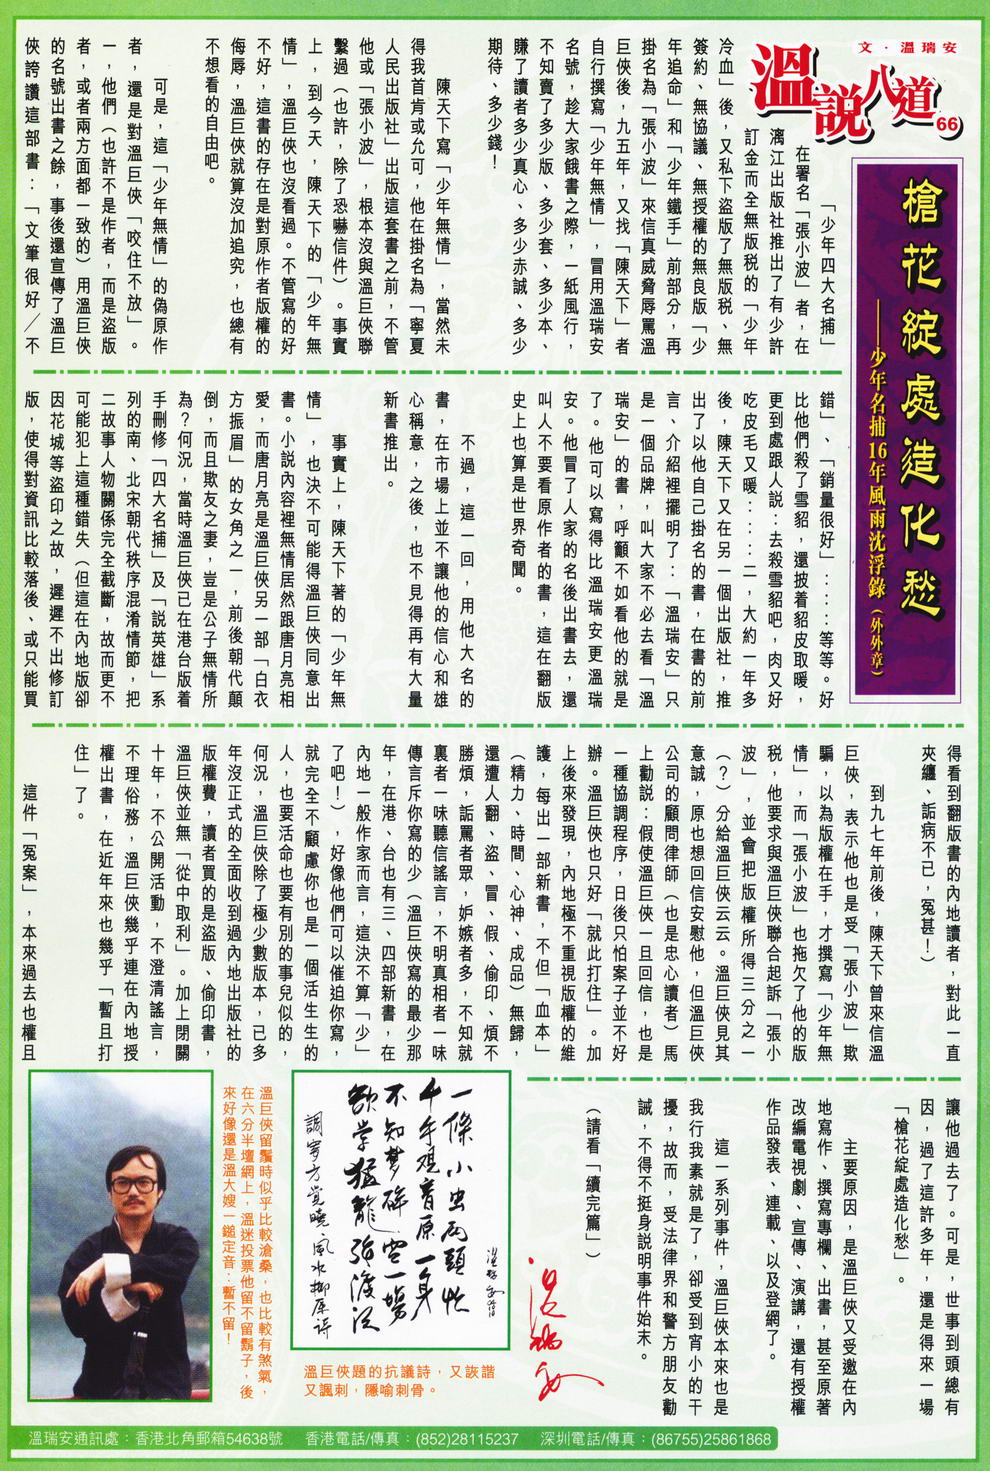 文‧溫瑞安
溫説八道66
槍花綻處造化愁
——少年名捕16年風雨沈浮錄（外外章）
「少年四大名捕」
在署名「張小波」者，在
漓江出版社推出了有少許
訂金而全無版税的「少年
冷血」後，又私下盜版了無版税、無
簽約、無協議、無授權的無良版「少
年追命」和「少年鐵手」前部分，再
掛名為「張小波」來信真威脅辱罵溫
巨俠後，九五年，又找「陳天下」者
自行撰寫「少年無情」，冒用溫瑞安
名號，趁大家餓書之際，一紙風行，
不知賣了多少版、多少套、多少本、
賺了讀者多少真心、多少赤誠、多少
期待、多少錢！
陳天下寫「少年無情」，當然未
得我首肯或允可，他在掛名為「寧夏
人民出版社」出版這套書之前，不管
他或「張小波」，根本沒與溫巨俠聯
繫過（也許，除了恐嚇信件）。事實
上，到今天，陳天下的「少年無
情」，溫巨俠也沒看過。不管寫的好
不好，這書的存在是對原作者版權的
侮辱，溫巨俠就算沒加追究，也總有
不想看的自由吧。
可是，這「少年無情」的偽原作
者，還是對溫巨俠「咬住不放」。
一，他們（也許不是作者，而是盜版
者，或者兩方面都一致的）用溫巨俠
的名號出書之餘，事後還宣傳了溫巨
俠誇讚這部書：「文筆很好／不
錯」、「銷量很好」：：：等等。好
比他們殺了雪貂，還披着貂皮取暖，
更到處跟人説：去殺雪貂吧，肉又好
吃皮毛又暖：：：二，大約一年多
後，陳天下又在另一個出版社，推
出了以他自己掛名的書，在書的前
言、介紹裡擺明了：「溫瑞安」只
是一個品牌，叫大家不必去看「溫
瑞安」的書，呼籲不如看他的就是
了。他可以寫得比溫瑞安更溫瑞
安。他冒了人家的名後出書去，還
叫人不要看原作者的書，這在翻版
史上也算是世界奇聞。
不過，這一回，用他大名的
書，在市場上並不讓他的信心和雄
心稱意，之後，也不見得再有大量
新書推出。
事實上，陳天下著的「少年無
情」，也決不可能得溫巨俠同意出
書。小説內容裡無情居然跟唐月亮相
愛，而唐月亮是溫巨俠另一部「白衣
方振眉」的女角之一，前後朝代顛
倒，而且欺友之妻，豈是公子無情所
為？何況，當時溫巨俠已在港台版着
手刪修「四大名捕」及「説英雄」系
列的南、北宋朝代秩序混淆情節，把
二故事人物關係完全截斷，故而更不
可能犯上這種錯失（但這在內地版卻
因花城等盜印之故，遲遲不出修訂
版，使得對資訊比較落後、或只能買
得看到翻版書的內地讀者，對此一直
夾纏、詬病不已，冤甚！）
到九七年前後，陳天下曾來信溫
巨俠，表示他也是受「張小波」欺
騙，以為版權在手，才撰寫「少年無
情」，而「張小波」也拖欠了他的版
税，他要求與溫巨俠聯合起訴「張小
波」，並會把版權所得三分之一
（？）分給溫巨俠云云。溫巨俠見其
意誠，原也想回信安慰他，但溫巨俠
公司的顧問律師（也是忠心讀者）馬
上勸説：假使溫巨俠一旦回信，也是
一種協調程序，日後只怕案子並不好
辦。溫巨俠也只好「就此打住」。加
上後來發現，內地極不重視版權的維
護，每出一部新書，不但「血本」
（精力、時間、心神、成品）無歸，
還遭人翻、盜、冒、假、偷印、煩不
勝煩，詬罵者眾，妒嫉者多，不知就
裏者一味聽信謠言，不明真相者一味
傳言斥你寫的少（溫巨俠寫的最少那
年，在港、台也有三、四部新書，在
內地一般作家而言，這決不算「少」
了吧！），好像他們可以催迫你寫，
就完全不顧慮你也是一個活生生的
人，也要活命也要有別的事兒似的，
何況，溫巨俠除了極少數版本，已多
年沒正式的全面收到過內地出版社的
版權費，讀者買的是盜版、偷印書，
溫巨俠並無「從中取利」。加上閉關
十年，不公開活動，不澄清謠言，
不理俗務，溫巨俠幾乎連在內地授
權出書，在近年來也幾乎「暫且打
住」了。
這件「冤案」，本來過去也權且
讓他過去了。可是，世事到頭總有
因，過了這許多年，還是得來一場
「槍花綻處造化愁」。
主要原因，是溫巨俠又受邀在內
地寫作、撰寫專欄、出書，甚至原著
改編電視劇、宣傳、演講，還有授權
作品發表、連載、以及登網了。
這一系列事件，溫巨俠本來也是
我行我素就是了，卻受到宵小的干
擾，故而，受法律界和警方朋友勸
誡，不得不挺身説明事件始末。
（請看「續完篇」）
溫瑞安
一條小虫兩頭忙
千手觀音原一身
不知夢碎空一場
欲學猛龍強渡江
調寄方覺曉‧風水柳原诗
溫巨俠題的抗議詩，又詼諧
又諷刺，隱喻刺骨。
溫巨俠留鬚時似乎比較滄桑，也比較有煞氣，
在六分半壇網上，溫迷投票他留不留鬍子，後
來好像還是溫大嫂一鎚定音：暫不留！
溫瑞安通訊處：香港北角郵箱54638號　香港電話/傳真：(852)28115237　深圳電話/傳真：(86755)25861868